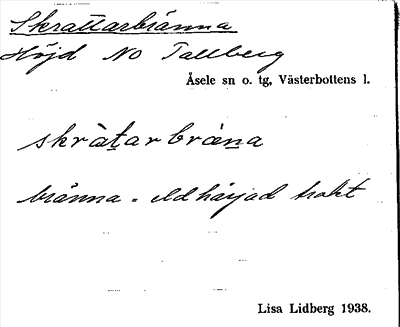 Skrattarbränna
Höjd NO Tallberg
Åsele sn o. tg, Västerbottens l.
skràt̯arbràn̯a
bränna = eldhärjad trakt
Lisa Lidberg 1938.